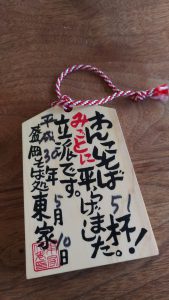 わんこそば
51杯!
みごとに平らげました。
立派です。
平成30年5月10日
盛岡そば処東家